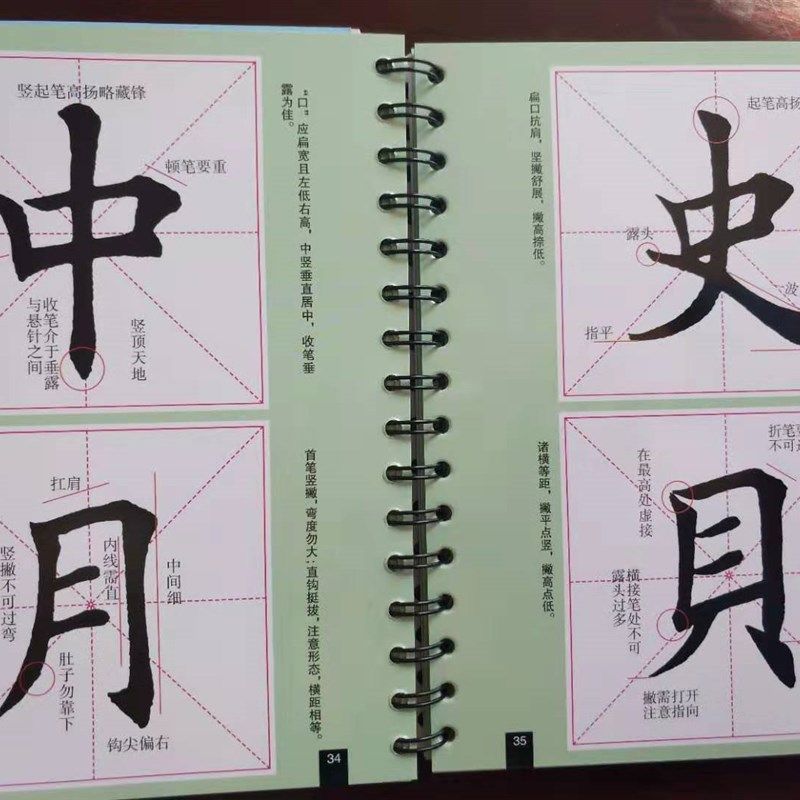 竖起笔高扬略藏锋
顿笔要重
中
收笔介于垂露
与悬针之间
竖顶天地
“口”应扁宽且左低右高，中竖垂直居中，收笔垂
露为佳。
扛肩
竖撇不可过弯
月
内线需直
中间细
肚子勿靠下
钩尖偏右
首笔竖撇，弯度勿大；直钩挺拔，注意形态，横距相等。
34
扁口抗肩，竖撇舒展，撇高捺低。
起笔高扬
史
露头
一波
指平
诸横等距，撇平点竖，撇高点低。
折笔
不可
在最高处虚接
貝
横接笔处不可
露头过多
撇需打开
注意指向
35